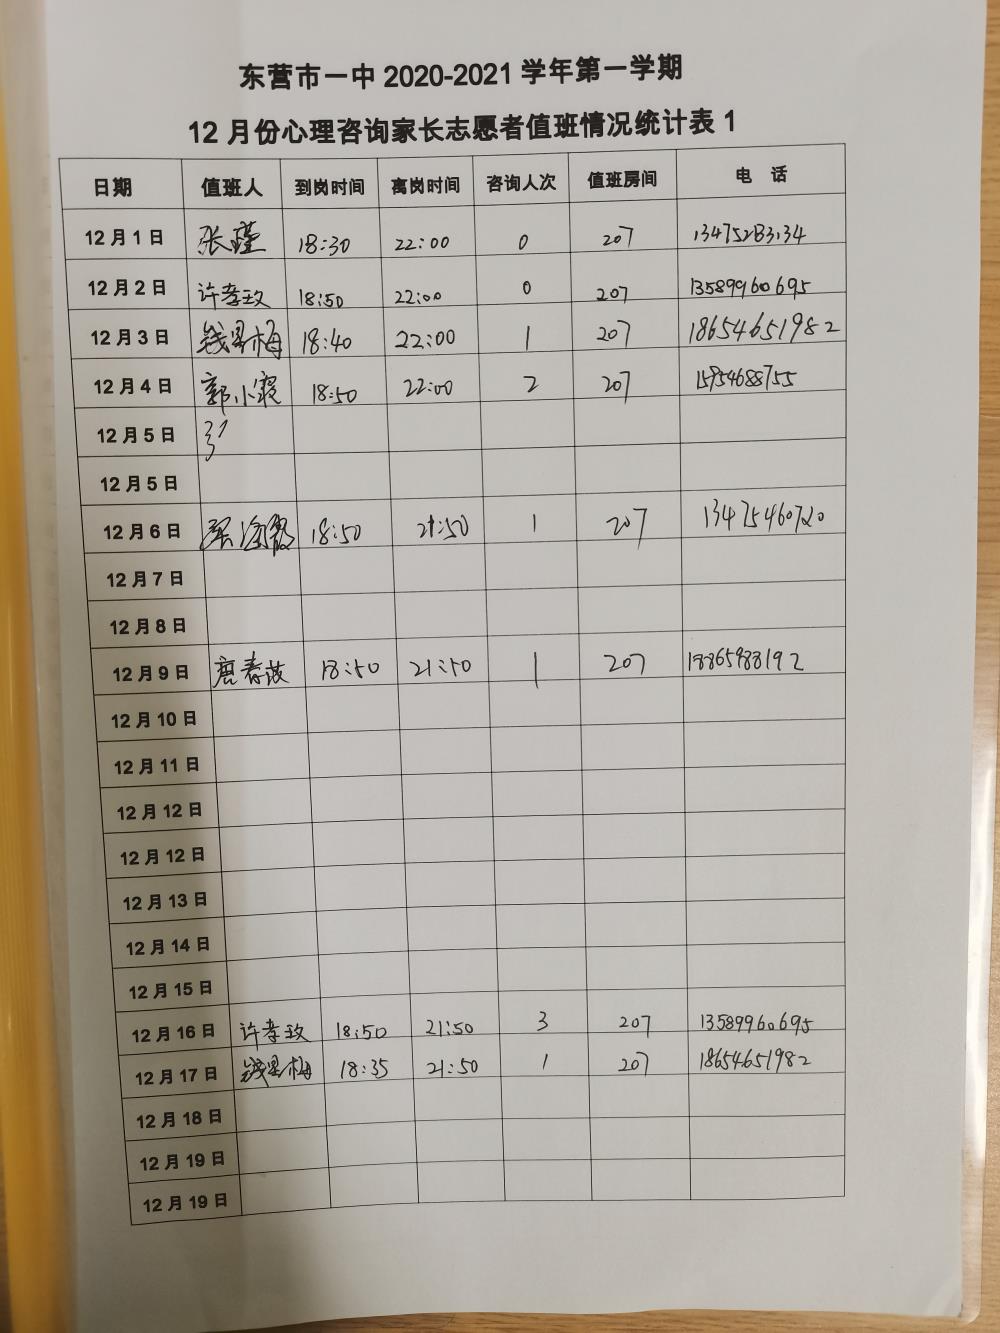 东营市一中 2020-2021 学年第一学期
12 月份心理咨询家长志愿者值班情况统计表 1
日期 值班人 到岗时间 离岗时间 咨询人次 值班房间 电 话
12 月 1 日 张瑾 18:30 22:00 0 207 13475283134
12 月 2 日 许孝玫 18:50 22:00 0 207 13589960695
12 月 3 日 钱星梅 18:40 22:00 1 207 18654651982
12 月 4 日 郭小霞 18:50 22:00 2 207 15954688755
12 月 5 日
12 月 5 日
12 月 6 日 18:50 21:50 1 207 13475460720
12 月 7 日
12 月 8 日
12 月 9 日 唐春波 18:50 21:50 1 207 18865988192
12 月 10 日
12 月 11 日
12 月 12 日
12 月 12 日
12 月 13 日
12 月 14 日
12 月 15 日
12 月 16 日 许孝玫 18:50 21:50 3 207 13589960695
12 月 17 日 钱星梅 18:35 21:50 1 207 18654651982
12 月 18 日
12 月 19 日
12 月 19 日